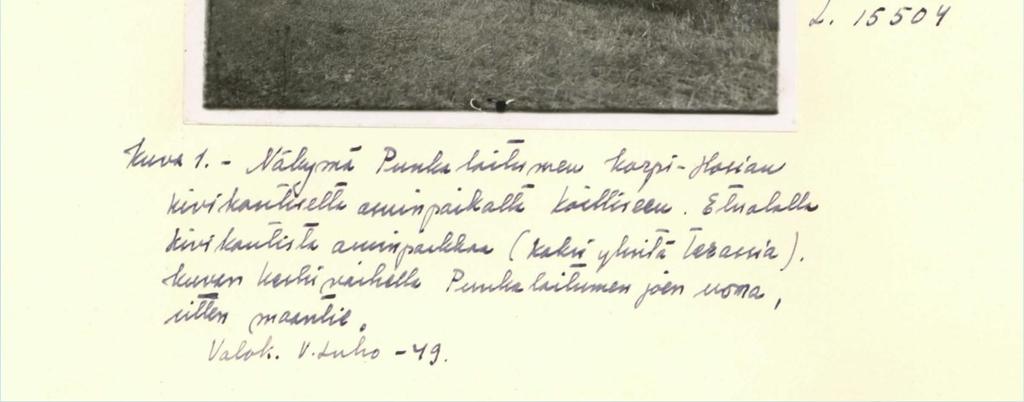 L. 15504
Kuva 1. - Näkymä Punkalaitumen Korpi-Hosian
kivikautiselta asuinpaikalta koilliseen. Etualalla
kivikautista asuinpaikkaa (kaksi ylintä terassia).
Kuvan keskivaiheilla Punkalaitumen joen uoma,
sitten maantie.
Valok. V. Luho -49.